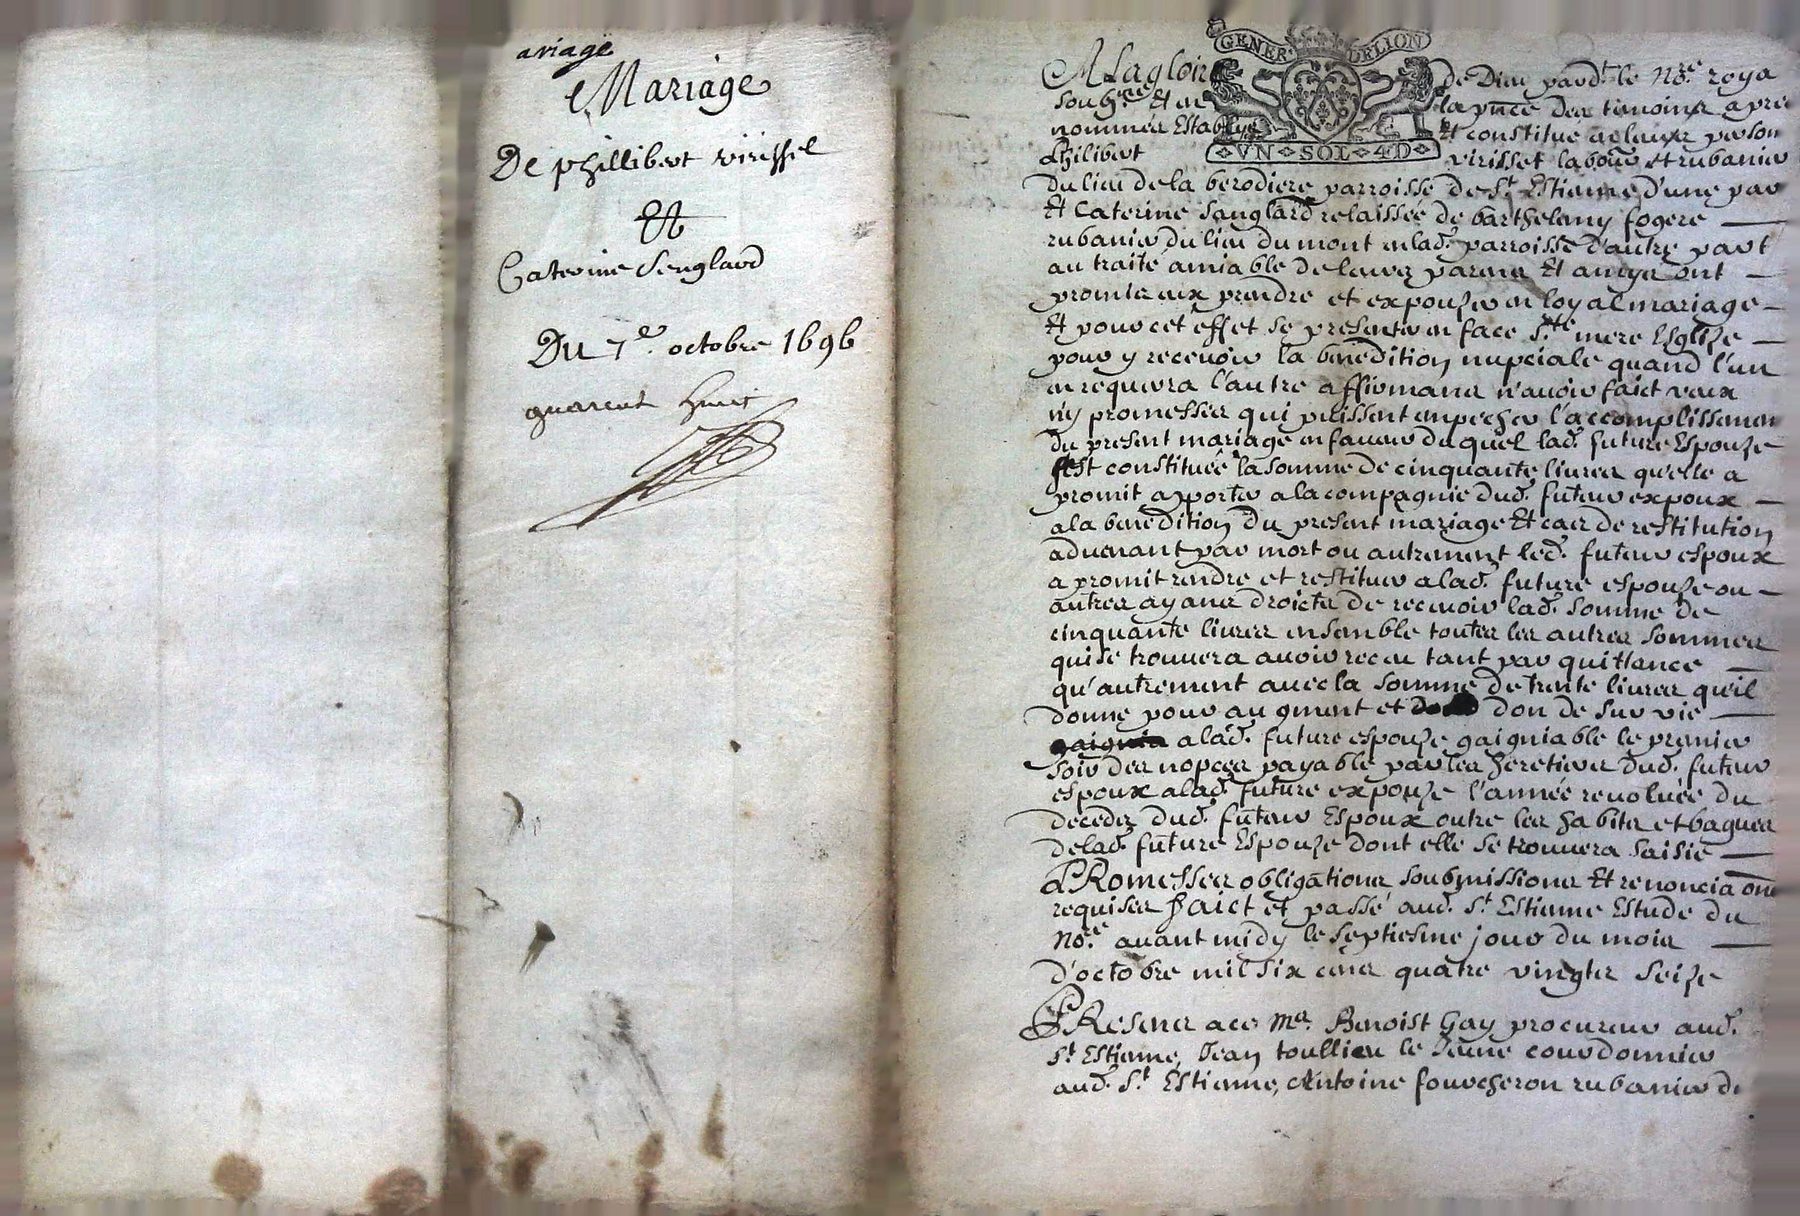 ariage
Mariage
De phillibert virissel
Et
Caterine Senglard
Du 7e. octobre 1696
quarent huit
GENER. DELION
VN SOL 4D
A La gloire de Dieu pardt. le Nore. roya
soubsne. Et en la pnce des temoins apres
nommés Establys Et constitués en leurs person
Philibert virisset labour et rubanier
du lieu de la berodiere parroisse de St. Estienne d'une par
Et Caterine Sanglard relaissée de barthelemy fogere
rubanier du lieu du mont en lad. parroisse d'autre part
au traité amiable de leurs parens Et amys ont
promis eux prendre et expouzer en loyal mariage
Et pour cet effet se presenter en face Ste. mere Esglize
pour y recevoir la benedition nupciale quand l'un
en requerra l'autre affirmans n'avoir faict veux
ny promesses qui puissent enpecher l'accomplissemen
du present mariage en faveur du quel lad. future Espouze
s'est constituée la somme de cinquante livres qu'elle a
promit apporter a la compagnie dud. futeur expoux
a la benedition du present mariage Et cas de restitution
advenant par mort ou autrement led. futeur espoux
a promit rendre et restituer a lad. future espouze ou
autres ayans droicts de recevoir lad. somme de
cinquante livres ensemble toutes les autres sommes
qui se trouvera avoir receu tant par quittance
qu'autrement avec la somme de trente livres qu'il
donne pour augment et don de survie
a lad. future espouze gaigniable le premier
soir des nopces payable par les heretiers dud. futeur
espoux a lad. future expouze l'année revoluée du
decedes dud. futeur Espoux outre les habits et bagues
de lad. future Espouze dont elle se trouvera saisie
PRomesses obligations soubmissions Et renonciaons
requises faict et passé aud. St. Estienne Estude du
Nore. avant midy le septiesme jour du mois
d'octobre mil six cens quatre vingts seize
PResens a ce Me. Benoist Gay procureur aud.
St. Estienne, Jean toullieu le Jeune courdonnier
aud. St. Estienne, Antoine fourcheron rubanier du